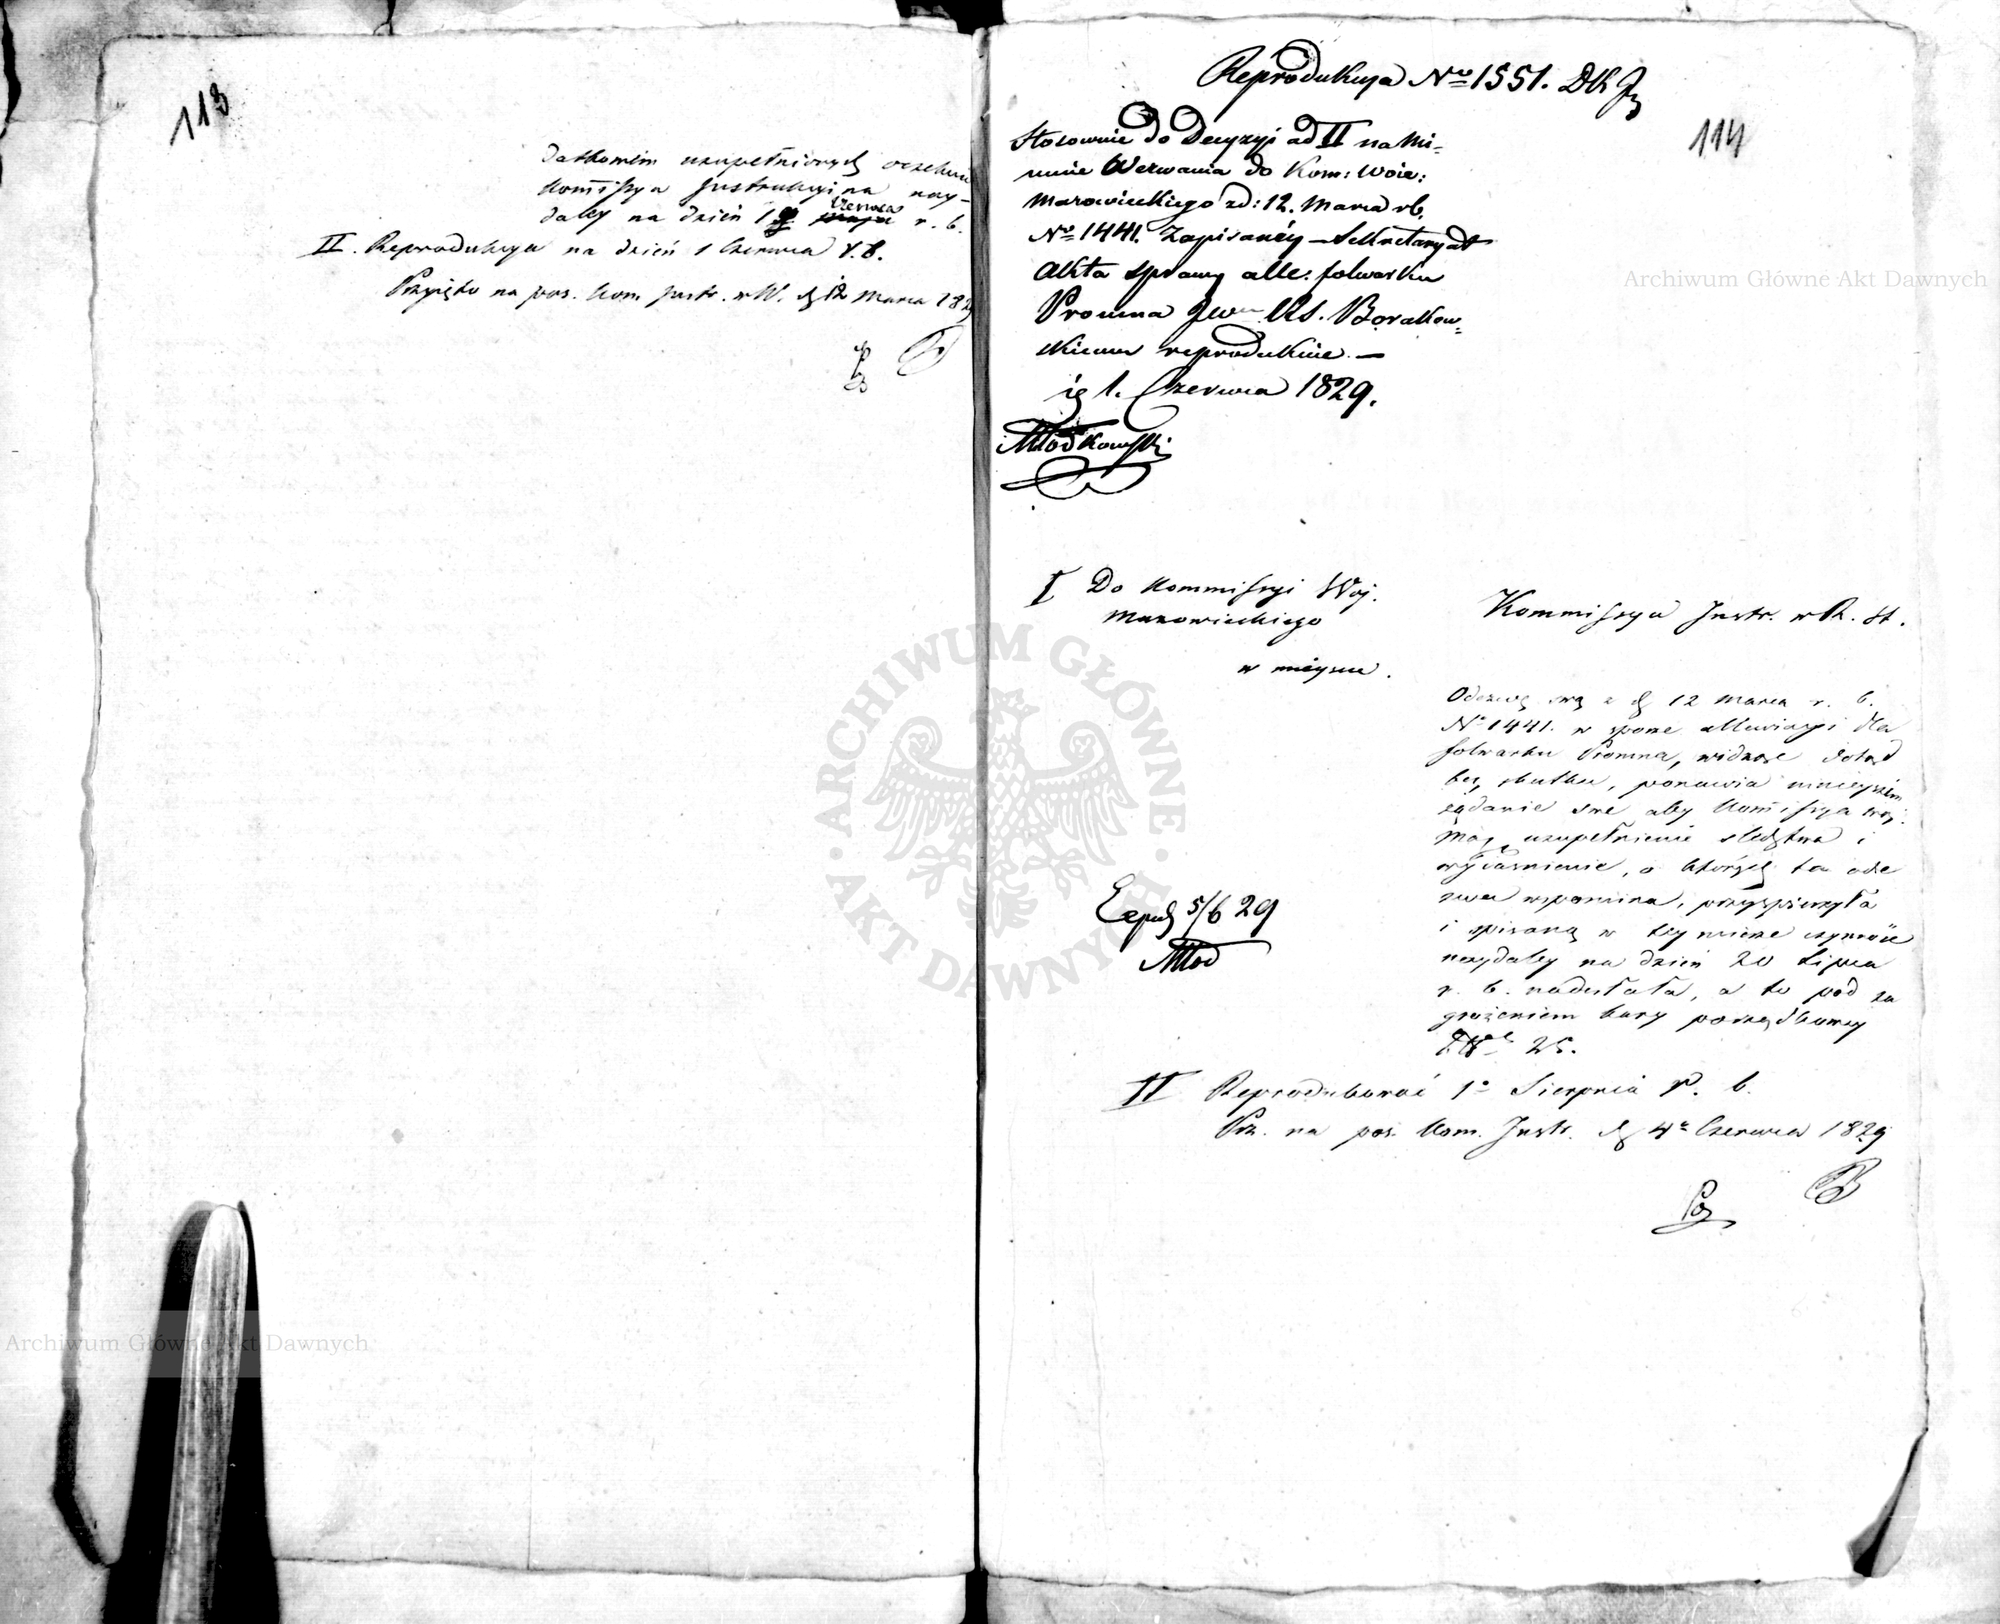 113
datkowem uzupełnionych oczekuje
Kommissya Instrukcyina nay-
daley na dzień 1 Czerwca r. b.
II. Reprodukcya na dzień 1 Czerwca r. b.
Przyięto na pos. Kom. Instr. w W. d 12 Marca 1829
Reprodukcya No 1551. DK
114
Stosownie do Decyzyi ad II na Mi-
nucie Wezwania do Kom: Woie:
Mazowieckiego zd: 12. Marca rb.
No 1441. Zapisanéy – Sekretaryat
Akta sprawy alle: folwarku
Promna JWmu Rs. Borakow-
skiemu reprodukuie. –
d 1. Czerwca 1829.
Młodkowski
I Do Kommissyi Woj.
Mazowieckiego
w mieyscu.
Kommissya Instr. w R. St.
Odezwę swą z d 12 Marca r. b.
No 1441. w sporze allewiacyi dla
folwarku Promna, widząc dotąd
bez skutku, ponawia ninieyszem
żądanie swe aby Kommissya Woj.
Maz. uzupełnienie śledztwa i
wyiaśnienie, o których ta ode
zwa wspomina, przyspieszyła
i spisaną w tey mierze czynność
naydaley na dzień 20 Lipca
r. b. nadesłała, a to pod za
grożeniem kary porządkowey
25.
Exped 5/6 29
Młod
II Reprodukować 1o Sierpnia r. b.
Prz. na pos. Kom. Instr. d 4o Czerwca 1829
Archiwum Główne Akt Dawnych
ARCHIWUM GŁÓWNE · AKT DAWNYCH ·
Archiwum Główne Akt Dawnych